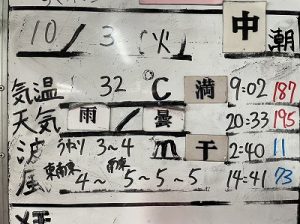 10/3(火) 中潮
気温 32 ℃ 満 9:02 187
天気 雨/曇 20:33 195
波 うねり 3~4 m 干 2:40 11
風 東南東 4~ 南東 5~5~5 14:41 73